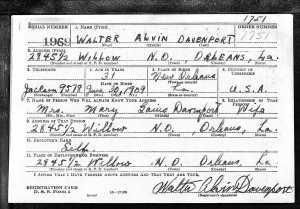 1751
SERIAL NUMBER 1. NAME (Print) ORDER NUMBER
1969 WALTER ALVIN DAVENPORT 1751
(First) (Middle) (Last)
2. ADDRESS (Print)
2845½ Willow N.O. ORLEANS, La.
3. TELEPHONE 4. AGE IN YEARS 5. PLACE OF BIRTH 6. COUNTRY OF
31 New Orleans
Jackson 9578 June 20, 1909 La. U.S.A.
7. NAME OF PERSON WHO WILL ALWAYS KNOW YOUR ADDRESS
Mrs. Mary Davenport Wife
2845½ Willow N.O. Orleans, La.
9. EMPLOYER'S NAME
Self
10. PLACE OF EMPLOYMENT OR BUSINESS
2845½ Willow N.O. Orleans, La.
I AFFIRM THAT I HAVE VERIFIED ABOVE ANSWERS AND THAT THEY ARE TRUE.
REGISTRATION CARD
D. S. S. FORM 1
Walter Alvin Davenport